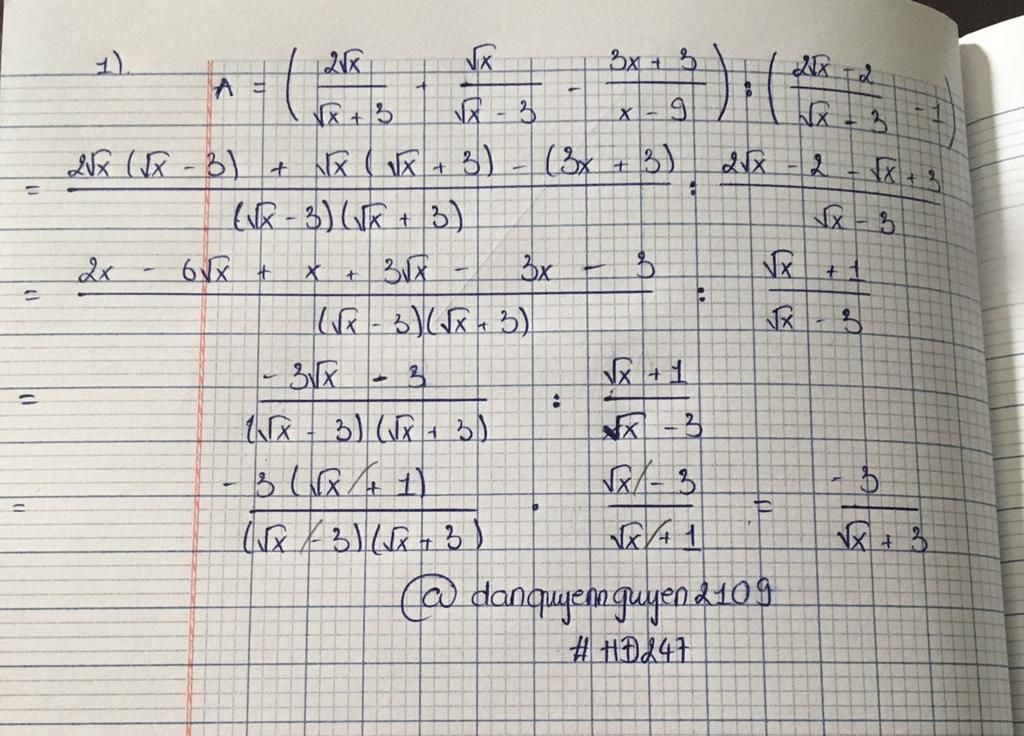 1). A = ( 2√x / (√x + 3) + √x / (√x - 3) - (3x + 3) / (x - 9) ) : ( (2√x - 2) / (√x - 3) - 1 )
= (2√x (√x - 3) + √x (√x + 3) - (3x + 3)) / ((√x - 3)(√x + 3)) : (2√x - 2 - √x + 3) / (√x - 3)
= (2x - 6√x + x + 3√x - 3x - 3) / ((√x - 3)(√x + 3)) : (√x + 1) / (√x - 3)
= (-3√x - 3) / ((√x - 3)(√x + 3)) : (√x + 1) / (√x - 3)
= -3(√x + 1) / ((√x - 3)(√x + 3)) . (√x - 3) / (√x + 1) = -3 / (√x + 3)
@danquyennguyen2109
#HĐ247